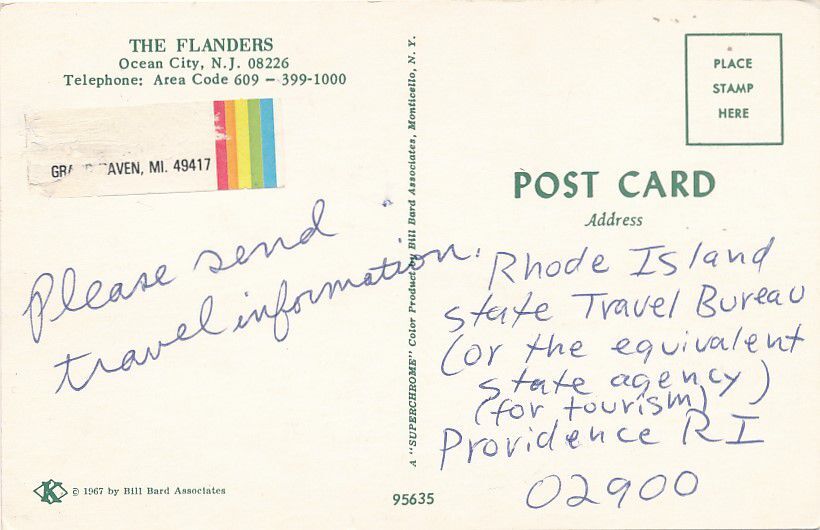 THE FLANDERS
Ocean City, N.J. 08226
Telephone: Area Code 609 – 399-1000
MI. 49417
Please send
travel information.
© 1967 by Bill Bard Associates
A "SUPERCHROME" Color Product by Bill Bard Associates, Monticello, N. Y.
95635
PLACE
STAMP
HERE
POST CARD
Address
Rhode Island
State Travel Bureau
(or the equivalent
state agency)
(for tourism)
Providence RI
02900